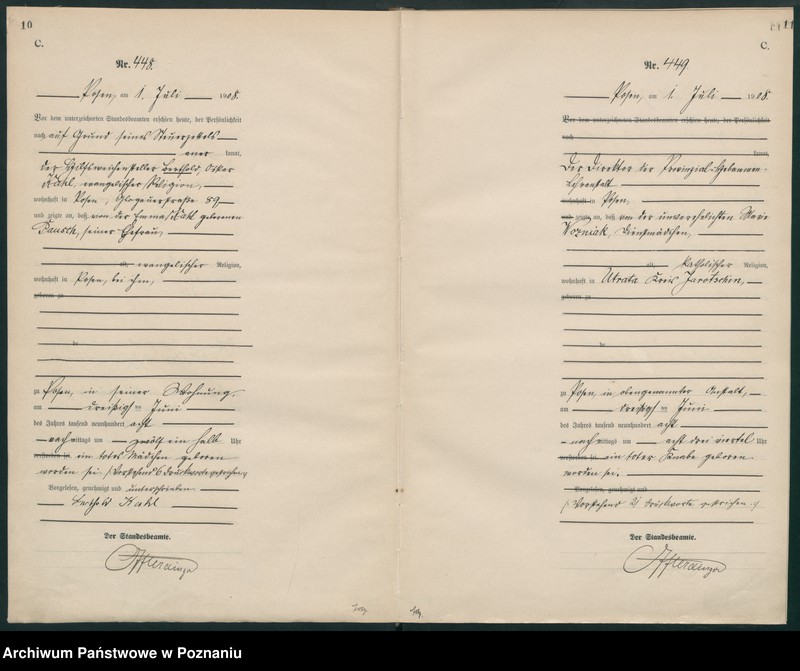 10
C.
Nr. 448.
Posen, am 1. Juli 1908.
Vor dem unterzeichneten Standesbeamten erschien heute, der Persönlichkeit
nach auf Grund seines Steuerzettels
aner kannt,
der Hilfsweichensteller Berthold, Oskar
Kahl, evangelischer Religion,
wohnhaft in Posen, Glogauerstraße 89
und zeigte an, daß von der Emma Kahl geborenen
Bausch, seiner Ehefrau,
evangelischer Religion,
wohnhaft in Posen, bei ihm,
geboren zu
zu Posen, in seiner Wohnung,
am dreißigsten Juni
des Jahres tausend neunhundert acht
nachmittags um zwölf ein halb Uhr
ein totes Mädchen geboren
worden sei. (Vorstehend 6 Druckworte gestrichen.)
Vorgelesen, genehmigt und unterschrieben
Berthold Kahl
Der Standesbeamte.
11
C.
Nr. 449
Posen, am 1. Juli 1908.
Vor dem unterzeichneten Standesbeamten erschien heute, der Persönlichkeit
nach
kannt,
Der Direktor der Provinzial-Hebammen-
Lehranstalt
wohnhaft in Posen,
und zeigte an, daß von der unverehelichten Marie
Wozniak, Dienstmädchen,
katholischer Religion,
wohnhaft in Utrata Kreis Jarotschin,
geboren zu
zu Posen, in obengenannter Anstalt,
am dreißigsten Juni
des Jahres tausend neunhundert acht
nachmittags um acht drei viertel Uhr
ein toter Knabe geboren
worden sei.
Vorgelesen, genehmigt und
(Vorstehend Druckworte gestrichen.)
Der Standesbeamte.
Archiwum Państwowe w Poznaniu